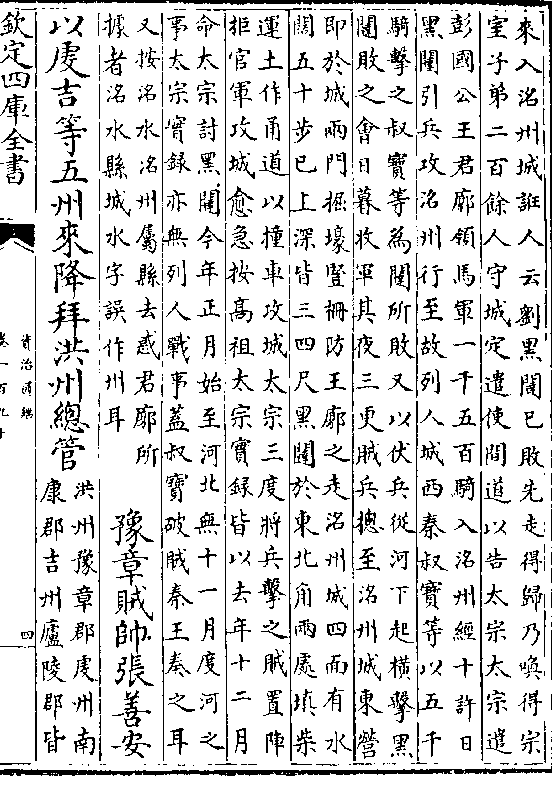 來入洺州城誑人云劉黑闥已敗先走得歸乃喚得宗
室子弟二百餘人守城定遣使間道以告太宗太宗遣
彭國公王君廓領馬軍一千五百騎入洺州經十許日
黑闥引兵攻洺州行至故列人城西秦叔寶等以五千
騎擊之叔寶等爲闥所敗又以伏兵從河下起橫擊黑
闥敗之會日暮收軍其夜三更賊兵摠至洺州城東營
即於城兩門掘壕豎柵防王廓之走洺州城四面有水
闊五十步已上深皆三四尺黑闥於東北角兩處填柴
運土作甬道以撞車攻城太宗三度將兵擊之賊置陣
拒官軍攻城愈急按髙祖太宗實録皆以去年十二月
命太宗討黑闥今年正月始至河北無十一月度河之
事太宗實録亦無列人戰事蓋叔寶破賊秦王奏之耳
又按洺水洺州屬縣去惑君廓所
據者洺水縣城水字誤作州耳
豫章賊帥張善安
以䖍吉等五州來降拜洪州總管
洪州豫章郡䖍州南
康郡吉州廬陵郡皆
欽定四庫全書
資治通鑑
卷一百九十
四